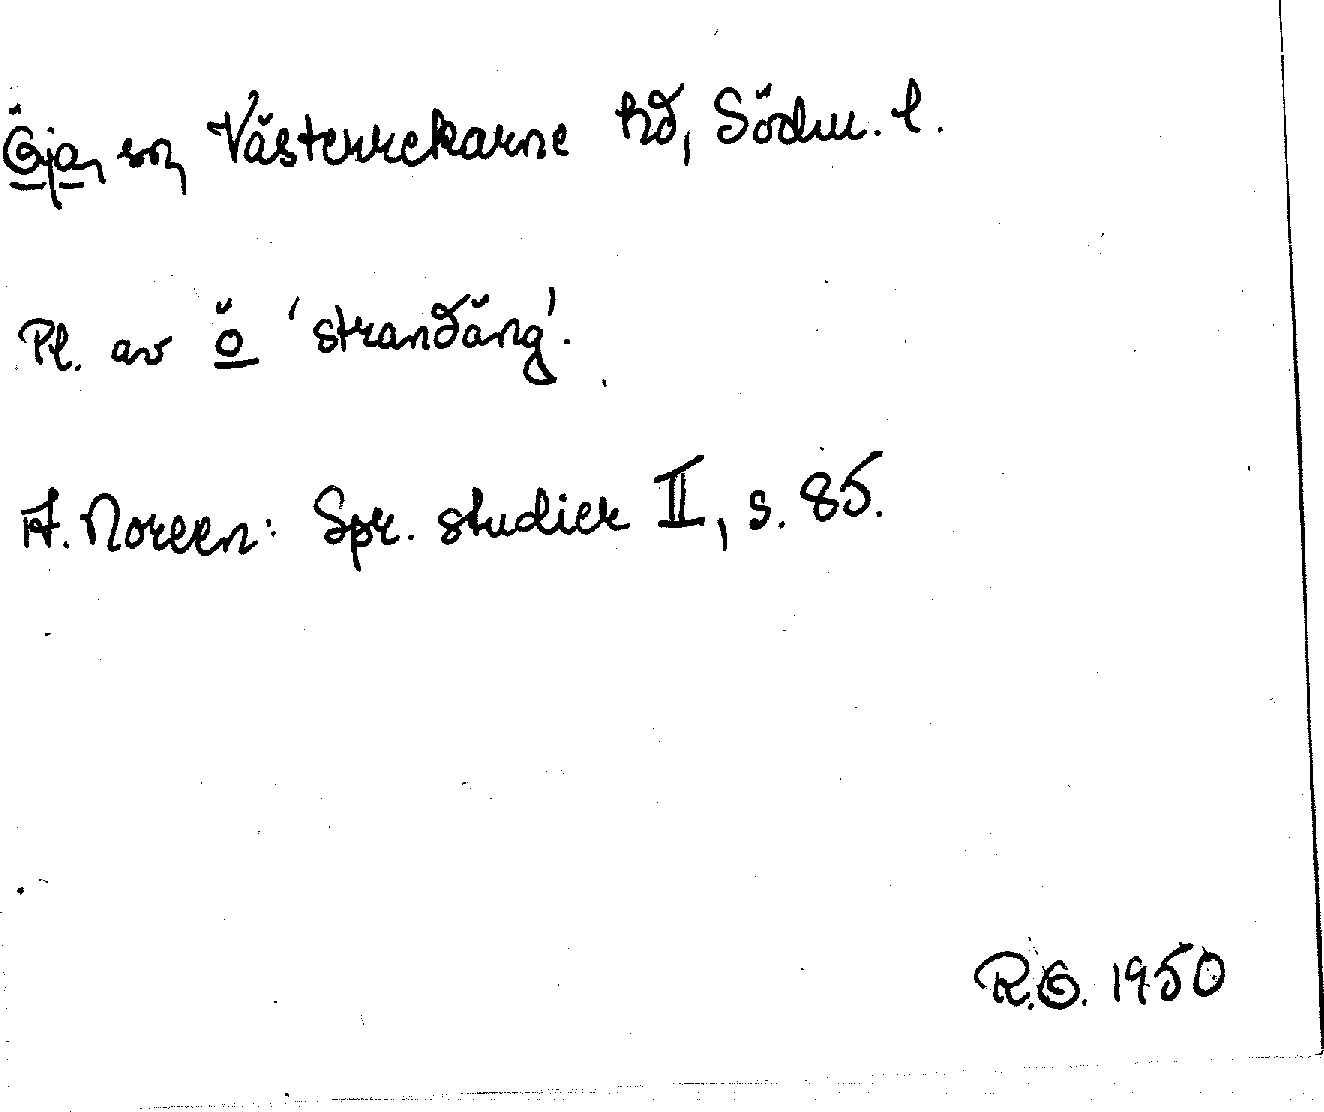 Öja, sn, Västerrekarne hd, Södm. l.
Pl. av ö 'strandäng'.
A. Noreen: Spr. studier II, s. 85.
R.O. 1950